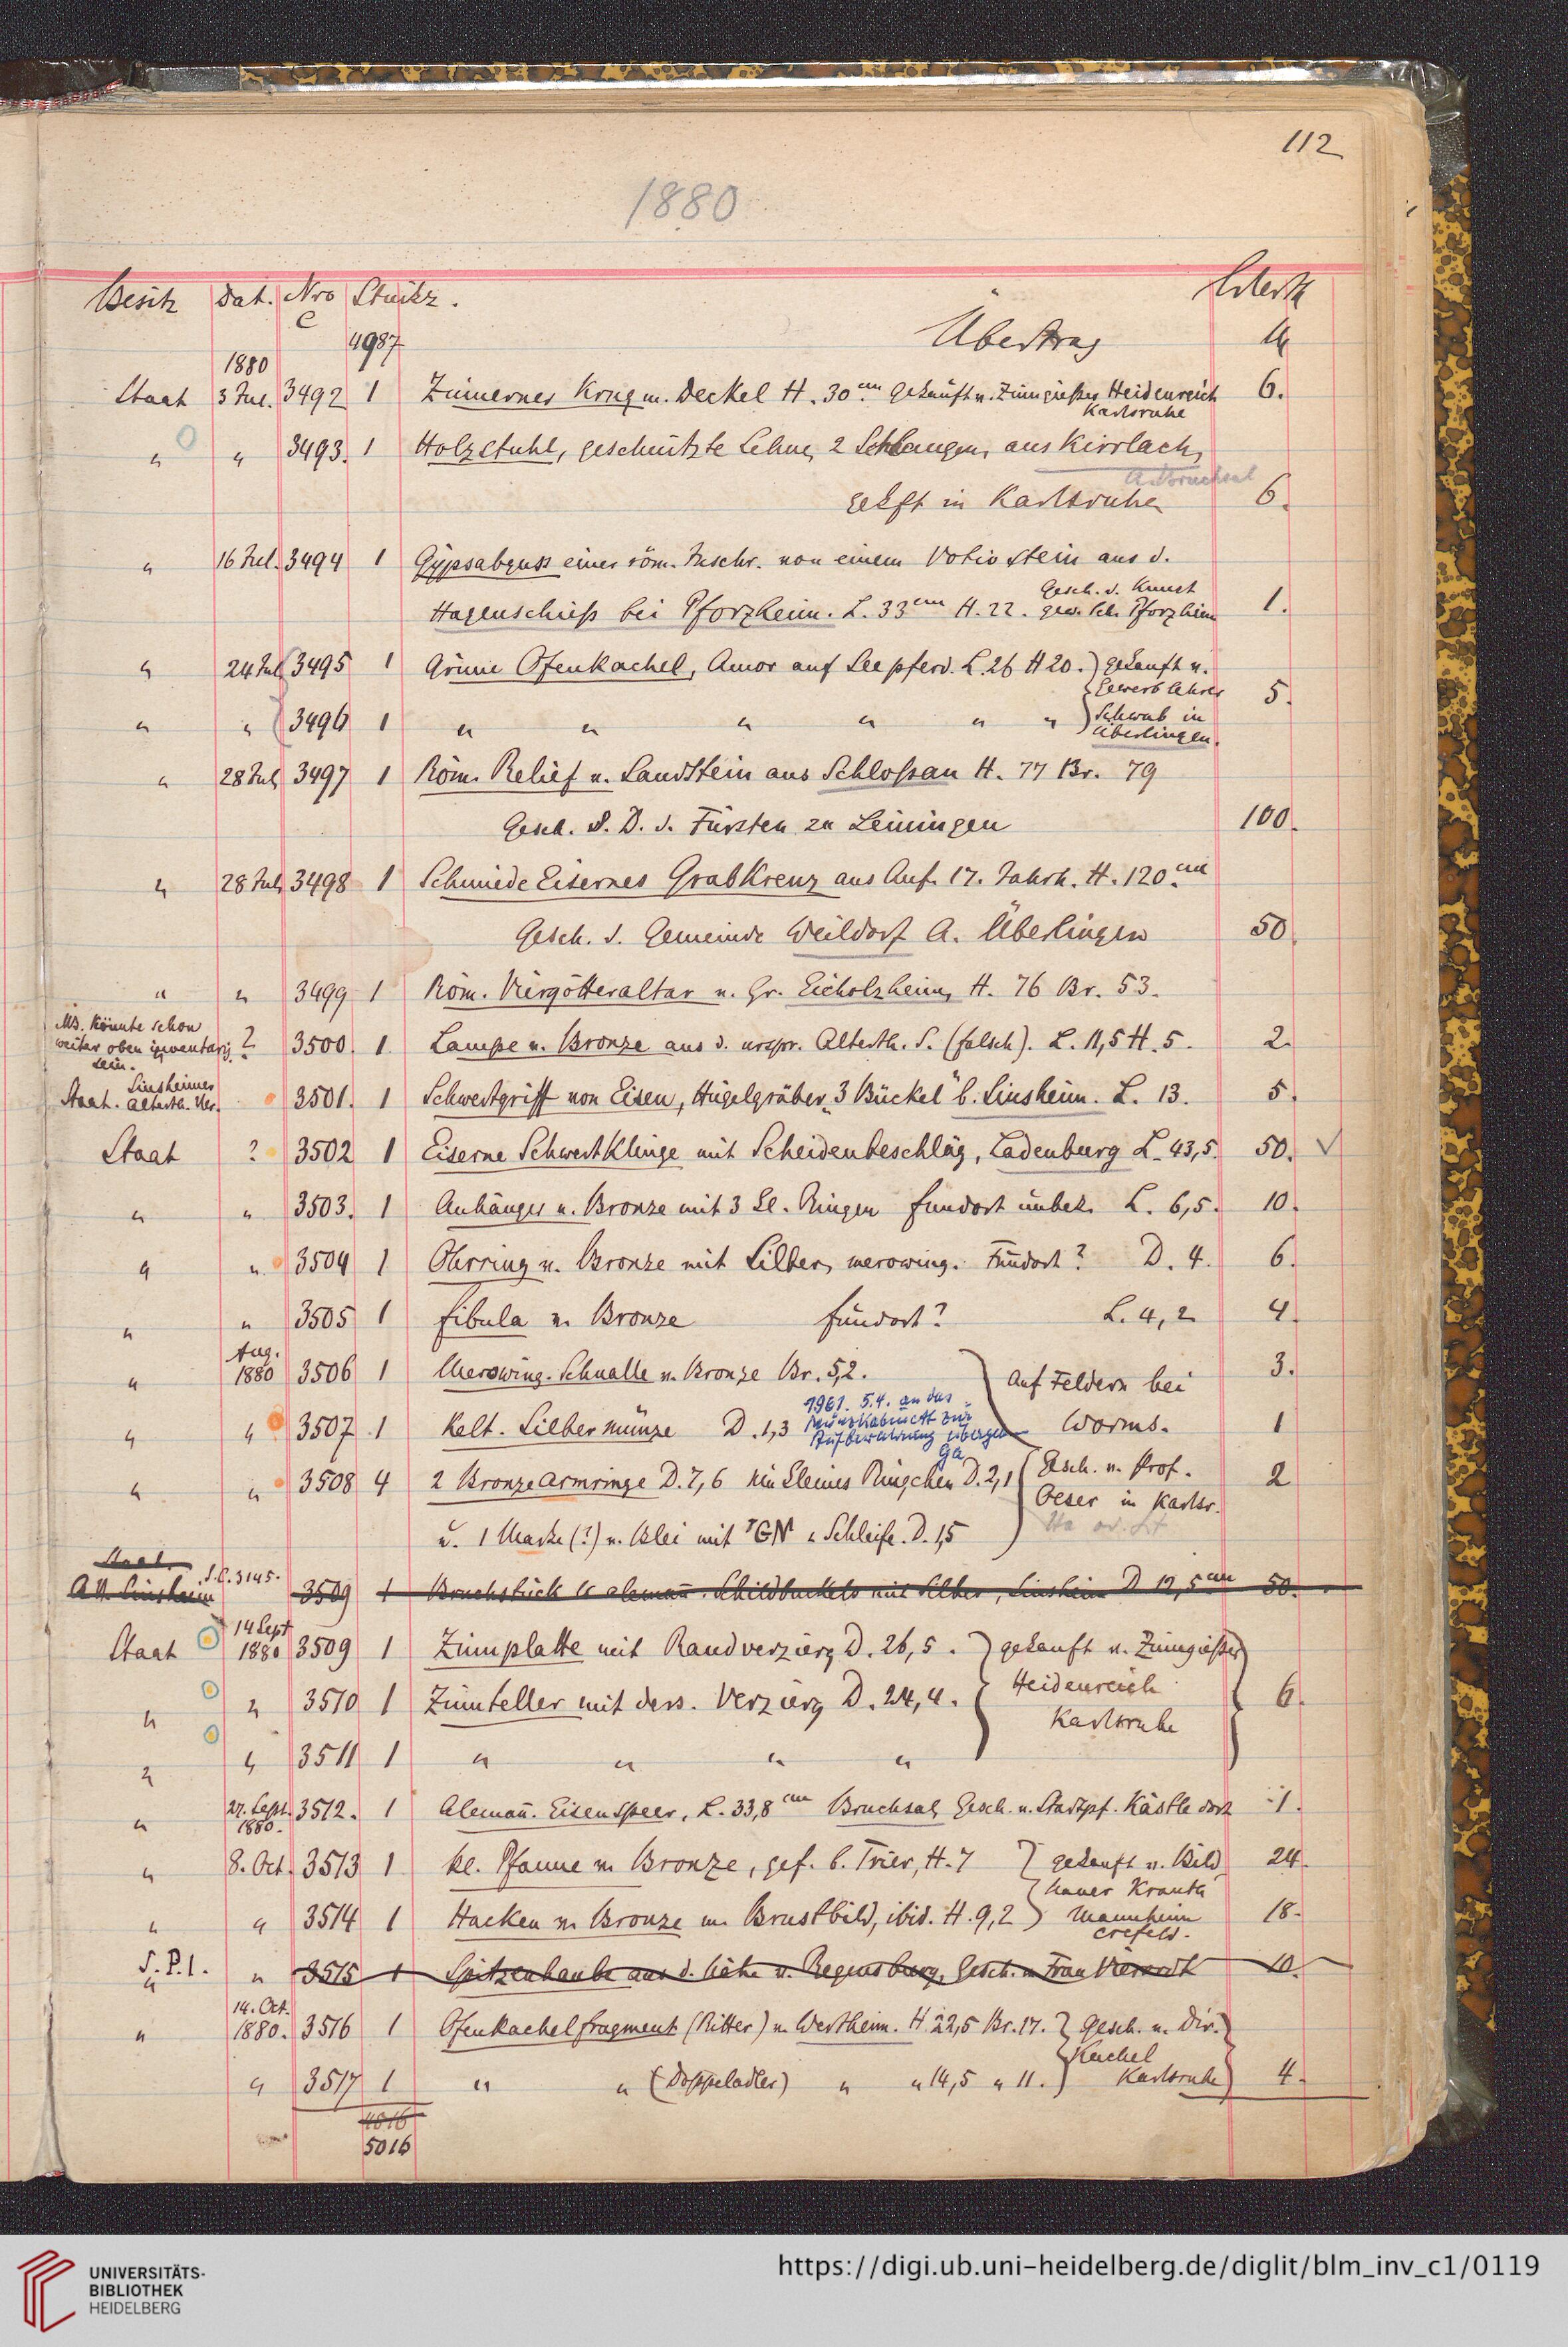 112
1880
Besitz Dat. Nro Stückz. Wert
C
4987 Übertrag M
1880
Staat 3 Jul. 3492 1 Zinnerner Krug m. Deckel H. 30 cm gekauft v. Zinngießer Heidenreich 6.
Karlsruhe
" " 3493. 1 Holzstuhl, geschnitzte Lehne, 2 Schlangen, aus Kirrlach,
A. Bruchsal
gekft in Karlsruhe 6.
" 16 Jul. 3494 1 Gypsabguss einer röm. Inschr. von einem Votivstein aus d.
Gesch. d. Kunst
Hagenschieß bei Pforzheim. L. 33 cm H. 22. gew. Sch. Pforzheim 1.
" 24 Jul. 3495 1 Grüne Ofenkachel, Amor auf Seepferd. L. 26 H 20. gekauft v.
Gewerblehrer 5.
" " 3496 1 " " " " " " Schwab in
Überlingen.
" 28 Jul. 3497 1 Röm. Relief v. Sandstein aus Schloßau H. 77 Br. 79
Gesch. S. D. d. Fürsten zu Leiningen 100.
" 28 Jul. 3498 1 Schmiedeeisernes Grabkreuz aus Anf. 17. Jahrh. H. 120 cm
Gesch. d. Gemeinde Weildorf A. Überlingen 50
" " 3499 1 Röm. Viergötteraltar v. Gr. Eicholzheim, H. 76 Br. 53.
NB. könnte schon
weiter oben inventaris. ? 3500. 1. Lampe v. Bronze aus d. urspr. Alterth. S. (falsch). L. 11,5 H. 5. 2.
sein.
Sinsheimer
Staat. Alterth. Ver. 3501. 1 Schwertgriff von Eisen, Hügelgräber "3 Bückel" b. Sinsheim. L. 13. 5.
Staat ? 3502 1 Eiserne Schwertklinge mit Scheidenbeschläg, Ladenburg L. 43,5. 50. ✓
" " 3503. 1 Anhänger v. Bronze mit 3 kl. Ringen Fundort unbek. L. 6,5. 10.
" " 3504 1 Ohrring v. Bronze mit Silber, merowing. Fundort? D. 4. 6.
" " 3505 1 Fibula v. Bronze Fundort? L. 4,2 4.
Aug.
" 1880 3506 1 Merowing. Schnalle v. Bronze Br. 5,2. Auf Feldern bei 3.
1961. 5.4. an das
" " 3507 1 Kelt. Silbermünze D. 1,3 Münzkabinett zur Worms. 1
Aufbewahrung übergeben
Ga
" " 3508 4 2 Bronzearmringe D. 7,6 ein kleines Ringchen D. 2,1 Gesch. v. Prof. 2
Oeser in Karlsr.
u. 1 Marke (?) v. Blei mit GN u Schleife. D. 1,5
Staat
A.V. Sinsheim s. C. 3145. 3509 1 Bruchstück e alemañ. Schildbuckels mit Silber, Sinsheim D 19,5 cm 50.
14 Sept
Staat 1880 3509 1 Zinnplatte mit Randverzierg D. 26,5. gekauft v. Zinngießer
" " 3510 1 Zinnteller mit ders. Verzierg D. 24,4. Heidenreich 6.
Karlsruhe
" " 3511 1 " " " "
" 27. Sept. 3512. 1 Alemañ. Eisenspeer, L. 33,8 cm Bruchsal, Gesch. v. Stadtpf. Kästle dort 1.
1880.
" 8. Oct. 3513 1 kl. Pfanne v. Bronze, gef. b. Trier, H. 7 gekauft v. Bild 24.
hauer Krauth
" " 3514 1 Hacken v. Bronze m. Brustbild, ibid. H. 9,2 Mannheim 18.
Crefeld.
S. P. 1.
" " 3515 1 Spitzenhaube aus d. Nähe v. Regensburg, Gesch. v. Frau Vierordt 10.
14. Oct.
" 1880. 3516 1 Ofenkachelfragment (Ritter) v. Wertheim. H. 22,5 Br. 17. Gesch. v. Dir.
Kachel
" 3517 1 " " (Doppeladler) " " 14,5 " 11. Karlsruhe 4.
4016
5016
UNIVERSITÄTS-
BIBLIOTHEK
HEIDELBERG
https://digi.ub.uni-heidelberg.de/diglit/blm_inv_c1/0119